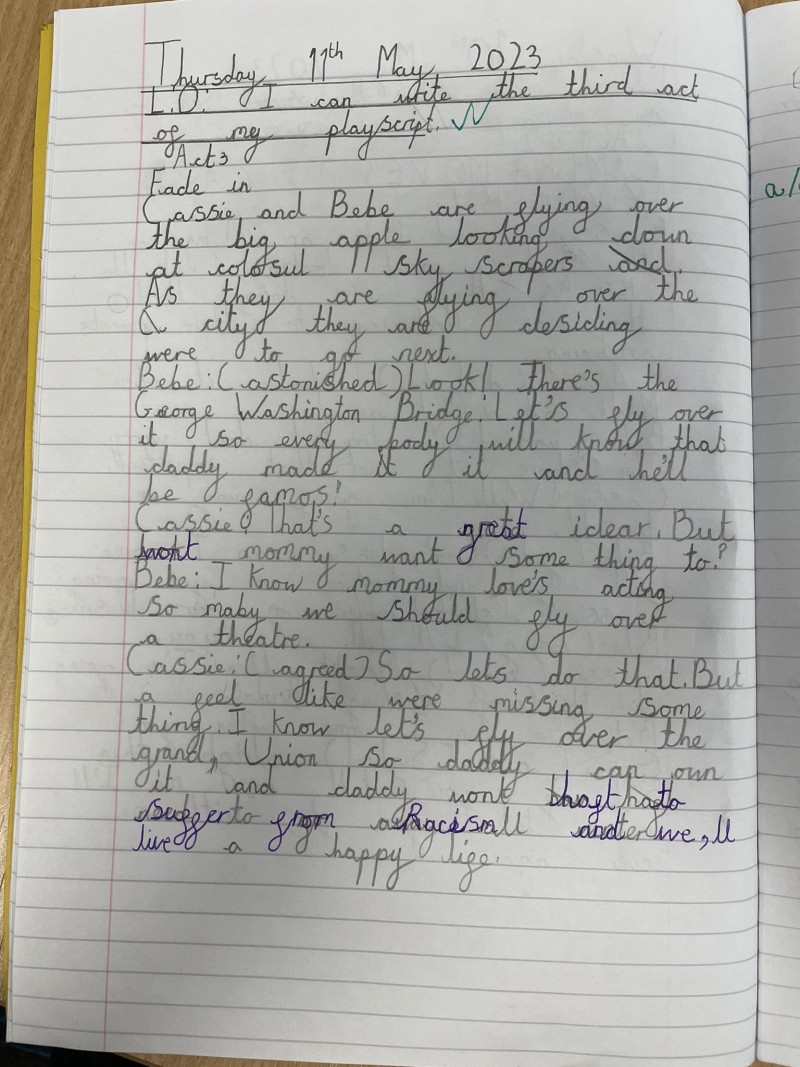 Thursday 11th May 2023
L.O: I can write the third act
of my playscript.
Act 3
Fade in
Cassie and Bebe are flying over
the big apple looking down
at colosul sky scrapers and.
As they are flying over the
city they are desiding
were to go next.
Bebe: (astonished) Look! There's the
George Washington Bridge. Let's fly over
it so every body will know that
daddy made it and he'll
be famos!
Cassie: That's a great idear. But
wont mommy want some thing to?
Bebe: I know mommy love's acting
so maby we should fly over
a theatre.
Cassie: (agreed) So lets do that. But
a feel like were missing some
thing. I know let's fly over the
grand, Union so daddy can own
it and daddy wont hafto
suffer from Racism and we,ll
live a happy life.
a/